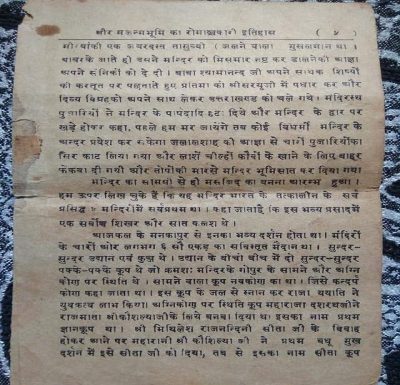 और मजन्मभूमि का रोमाञ्चकारी इतिहास ( ५ )
मौ॰यांकी एक जबरदस्त तास्सुबी (जलने वाला) मुसलमान था।
बाबरके आते हो बसने मन्दिर को मिसमार रुष्ट कर डालनेकी आज्ञा
अपने सैनिकों को दे दी। बाबा श्यामानन्द जी अपने साधक शिष्यों
की करतूत पर पछताते हुए प्रतिमा को श्रीसरयूजी में पधार कर और
दिव्य विग्रहको अपने साथ लेकर उत्तराखण्ड को चले गये। मंदिरस्थ
पुजारियों ने मन्दिर के पार्षदादि हटा दिये और मन्दिर के द्वार पर
खड़े होकर कहा, पहले हम मर जायेंगे तब कोई विधर्मी मन्दिर के
अन्दर प्रवेश कर सकेगा जलालशाह की आज्ञा से चारों पुजारियोंका
सिर काट लिया गया और लाशें चील्हों कौवों के खाने के लिए बाहर
फेंकवा दी गयीं और तोपोंकी मारसे मन्दिर भूमिसात कर दिया गया
मन्दिर का सामग्री से हो मसजिद का बनना आरम्भ हुआ।
हम ऊपर लिख चुके हैं कि यह मन्दिर भारत के तत्कालीन के सर्व
प्रसिद्ध मन्दिरोंमें सर्वप्रथम था। कहा जाताहै कि इस भव्य प्रसादमें
एक सर्वोच्च शिखर और सात कलश थे।
आजकल के मनकापुर से इनका भव्य दर्शन होता था। मंदिरों
के चारों ओर लगभग ६ सौ एकड़ का सविस्तृत मैदान था। सुन्दर-
सुन्दर उद्यान एवं कुञ्ज थे। उद्यान के बीचों बीच में दो सुन्दर-सुन्दर
पक्के-पक्के कूप थे जो क्रमशः मन्दिरके गोपुर के सामने और अग्नि
कोण पर स्थिति थे। सामने वाला कूप नवकोण का था। जिसे कन्दर्प
कोण कहा जाता था। इस कूप के जल से स्नान कर राजा ययाति ने
युवकत्व लाभ किया। अग्निकोण पर स्थिति कूप महाराजा दशरथजीने
राजमाता श्रीकौशल्याजीके लिये बनवा दिया था। इसका नाम प्रथम
ज्ञानकूप था। श्री मिथिलेश राजनन्दिनी सीता जी के विवाह
होकर आने पर महारानी श्री कौशिल्या जी ने प्रथम बधू मुख
दर्शन में इसे सीता जी को दिया, तब से इसका नाम सीता कूप